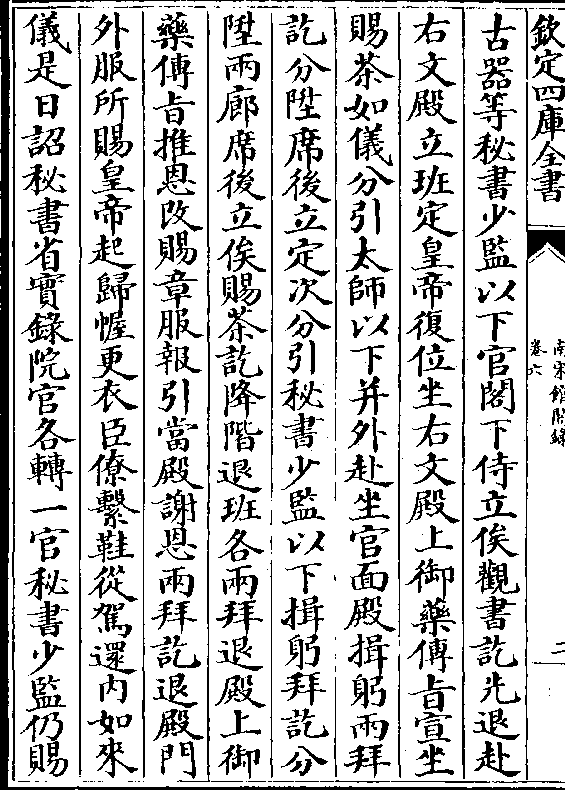 欽定四庫全書
南宋館閣録
卷六
二
古器等秘書少監以下官閣下侍立俟觀書訖先退赴
右文殿立班定皇帝復位坐右文殿上御藥傳㫖宣坐
賜茶如儀分引太師以下并外赴坐官面殿揖躬兩拜
訖分陞席後立定次分引秘書少監以下揖躬拜訖分
陞兩廊席後立俟賜茶訖降階退班各兩拜退殿上御
藥傳㫖推恩改賜章服報引當殿謝恩兩拜訖退殿門
外服所賜皇帝起歸幄更衣臣僚繫鞋從駕還内如來
儀是日詔秘書省實錄院官各轉一官秘書少監仍賜